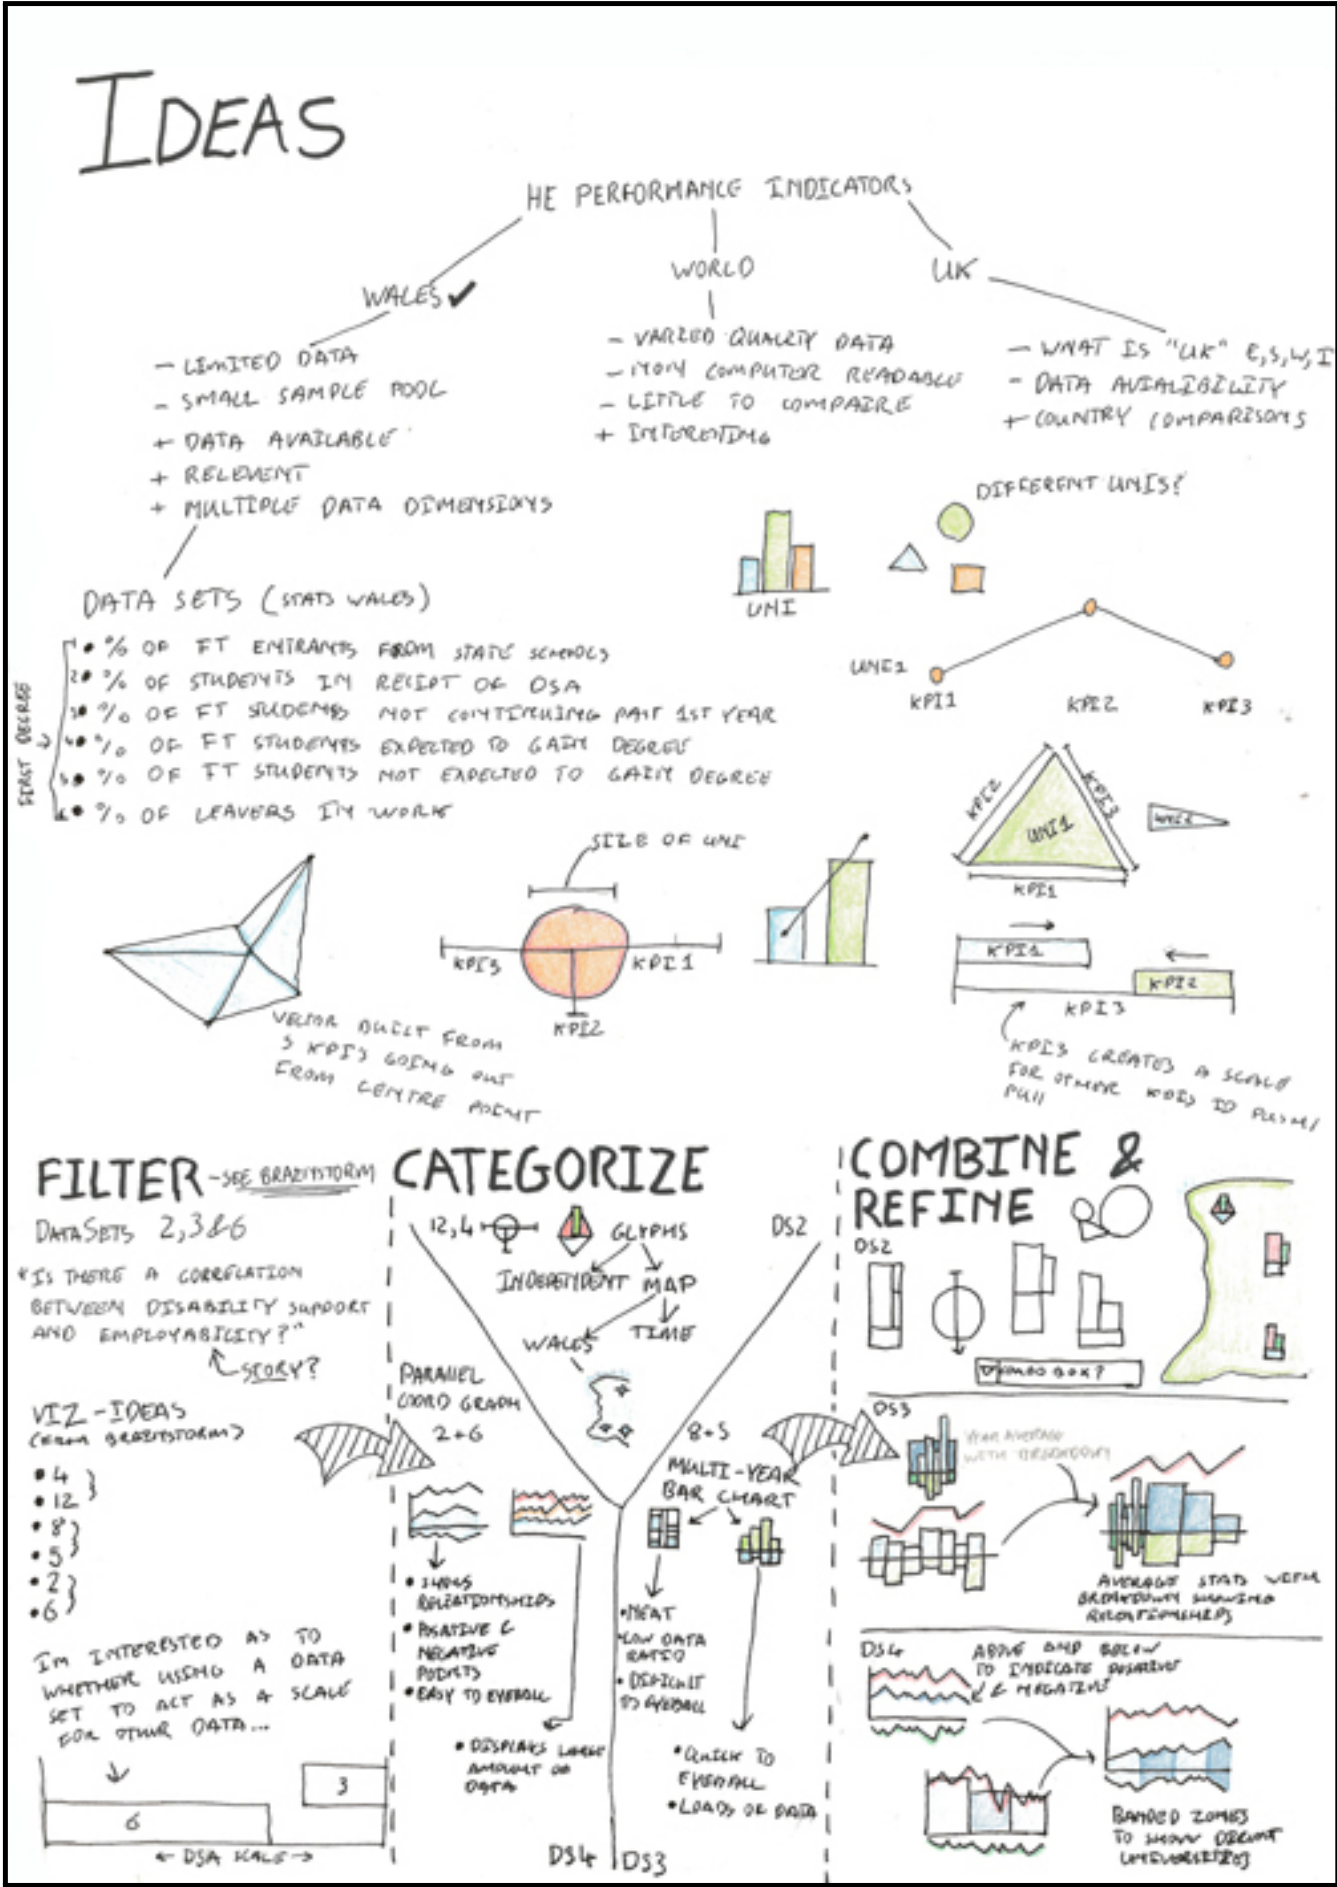 IDEAS
HE PERFORMANCE INDICATORS
WALES ✔
- LIMITED DATA
- SMALL SAMPLE POOL
+ DATA AVAILABLE
+ RELEVENT
+ MULTIPLE DATA DIMENSIONS
WORLD
- VARIED QUALITY DATA
- NON COMPUTER READABLE
- LITTLE TO COMPAIRE
+ INTERESTING
UK
- WHAT IS "UK" E,S,W,I
- DATA AVIALIBILITY
+ COUNTRY COMPARISONS
DATA SETS (STATS WALES)
FIRST DEGREE
1 • % OF FT ENTRANTS FROM STATE SCHOOLS
2 • % OF STUDENTS IN RECIPT OF DSA
3 • % OF FT STUDENTS NOT CONTINUING PAST 1ST YEAR
4 • % OF FT STUDENTS EXPECTED TO GAIN DEGREE
5 • % OF FT STUDENTS NOT EXPECTED TO GAIN DEGREE
6 • % OF LEAVERS IN WORK
UNI
DIFFERENT UNIS?
UNI1
KPI1
KPI2
KPI3
KPI2
KPI3
UNI1
KPI1
UNI2
VECTOR BUILT FROM
5 KPIS GOING OUT
FROM CENTRE POINT
SIZE OF UNI
KPI3
KPI1
KPI2
KPI1
KPI2
KPI3
KPI3 CREATES A SCALE
FOR OTHER KPIS TO PUSH/
PULL
FILTER - SEE BRAINSTORM
DATASETS 2,3&6
"IS THERE A CORRELATION
BETWEEN DISABILITY SUPPORT
AND EMPLOYABILITY?"
STORY?
VIZ-IDEAS
(FROM BRAINSTORM)
• 4
• 12
• 8
• 5
• 2
• 6
I'M INTERESTED AS TO
WHETHER USING A DATA
SET TO ACT AS A SCALE
FOR OTHER DATA...
3
6
← DSA SCALE →
CATEGORIZE
12,4
GLYPHS
DS2
INDEPENDENT
MAP
WALES
TIME
PARALLEL
COORD GRAPH
2+6
• SHOWS
RELEATIONSHIPS
• POSATIVE &
NEGATIVE
POINTS
• EASY TO EYEBALL
• DISPLAYS LARGE
AMOUNT OF
DATA
DS4
8+5
MULTI-YEAR
BAR CHART
• NEAT
• LOW DATA
RATIO
• DIFICULT
TO EYEBALL
• QUICK TO
EYEBALL
• LOADS OF DATA
DS3
COMBINE &
REFINE
DS2
COMBO BOX?
DS3
YEAR AVERAGE
WITH BREAKDOWN
AVERAGE STATS WITH
BREAKDOWN SHOWING
RELATIONSHIPS
DS4
ABOVE AND BELOW
TO INDICATE POSATIVE
& NEGATIVE
BANDED ZONES
TO SHOW